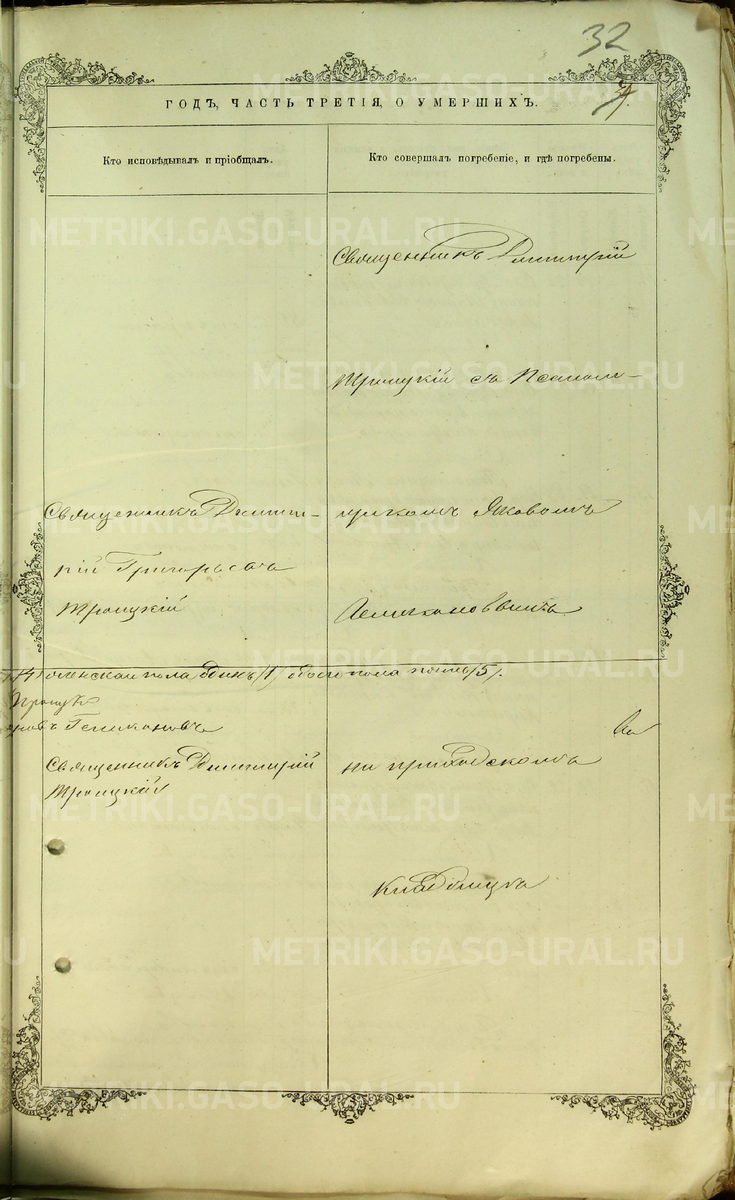 32
ГОДЪ, ЧАСТЬ ТРЕТІЯ, О УМЕРШИХЪ.
Кто исповѣдывалъ и пріобщалъ.
Кто совершалъ погребеніе, и гдѣ погребены.
Священникъ Димитрій
Троицкій съ Псалом-
Священникъ Димит-
рій Григорьевъ
Троицкій
щикомъ Яковомъ
женска пола одинъ /1/ обоего пола пять /5/.
Священникъ Димитрій
Троицкій
на приходскомъ
кладбищѣ
METRIKI.GASO-URAL.RU